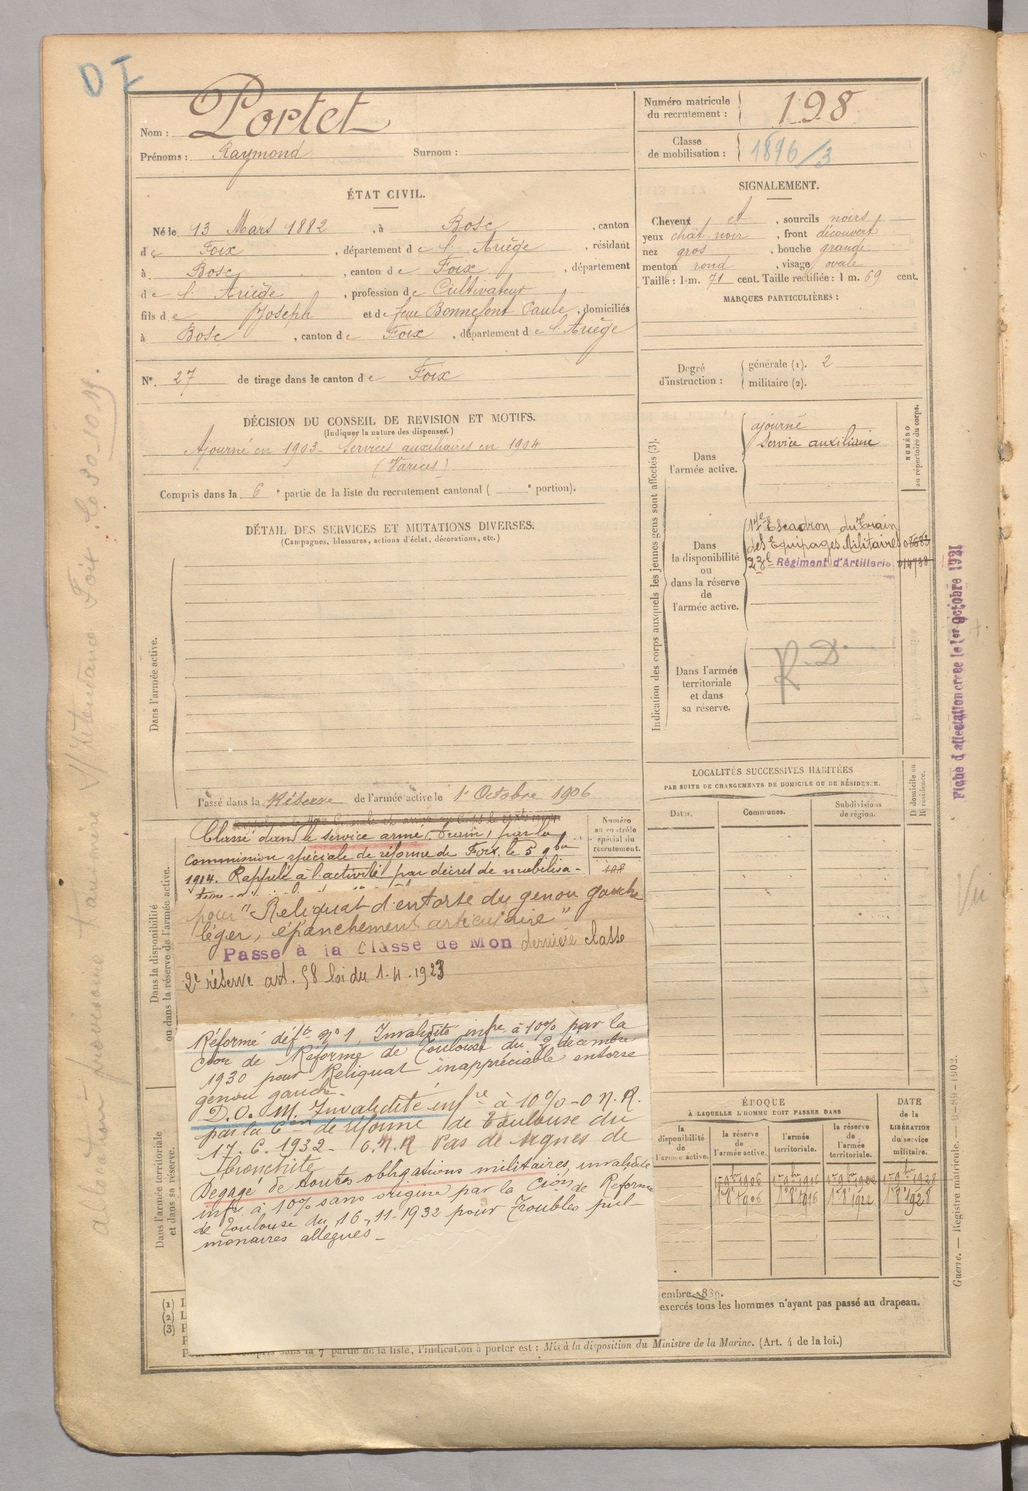 DI
Nom : Portet
Prénoms : Raymond Surnom :
Numéro matricule du recrutement : 198
Classe de mobilisation : 1896/3
ÉTAT CIVIL.
Né le 13 Mars 1882, à Bosc, canton
de Foix, département de l'Ariège, résidant
à Bosc, canton de Foix, département
de l'Ariège, profession de Cultivateur
fils de Joseph et de feue Bonnefont Paule, domiciliés
à Bosc, canton de Foix, département de l'Ariège
N°. 27 de tirage dans le canton de Foix
SIGNALEMENT.
Cheveux et, sourcils noirs
yeux chat noir, front découvert
nez gros, bouche grande
menton rond, visage ovale
Taille : 1 m. 71 cent. Taille rectifiée : 1 m. 69 cent.
MARQUES PARTICULIÈRES :
Degré d'instruction : générale (1). 2
militaire (2).
DÉCISION DU CONSEIL DE REVISION ET MOTIFS.
(Indiquer la nature des dispenses.)
Ajourné en 1903 Services auxiliaires en 1904
(Varices)
Compris dans la 6e partie de la liste du recrutement cantonal ( e portion).
DÉTAIL DES SERVICES ET MUTATIONS DIVERSES.
(Campagnes, blessures, actions d'éclat, décorations, etc.)
Dans l'armée active.
Passé dans la Réserve de l'armée active le 1er Octobre 1906
Classé dans le service armé (train) par la
commission spéciale de réforme de Foix le 5 9bre
1914. Rappelé à l'activité par décret de mobilisa-
pour "Reliquat d'entorse du genou gauche
léger, épanchement articulaire"
Passé à la Classe de Mon dernière classe
2e réserve art. 58 loi du 1-4-1923
Numéro au contrôle spécial du recrutement.
198
Dans la disponibilité ou dans la réserve de l'armée active.
Réformé déft n° 1, Invalidité infre à 10% par la
Cion de Réforme de Toulouse du 9 décembre
1930 pour Reliquat inappréciable entorse
genou gauche.
D.O.M. Invalidité infre à 10%-O N.R.
par la Con de réforme de Toulouse du
17.6.1932- O.N.R Pas de signes de
bronchite
Dégagé de toutes obligations militaires, invalidité
infre à 10% sans origine par la Cion de Réforme
de Toulouse du 16-11-1932 pour Troubles pul-
monaires allégués-
Dans l'armée territoriale et dans sa réserve.
Indication des corps auxquels les jeunes gens sont affectés (3).
NUMÉRO au répertoire du corps.
Dans l'armée active.
ajourné
Service auxiliaire
Dans la disponibilité ou dans la réserve de l'armée active.
17e Escadron du Train
des Equipages Militaires
23e Régiment d'Artillerie
Dans l'armée territoriale et dans sa réserve.
R.D.
LOCALITÉS SUCCESSIVES HABITÉES
PAR SUITE DE CHANGEMENTS DE DOMICILE OU DE RÉSIDENCE.
Dates. Communes. Subdivisions de région. D domicile ou R résidence.
ÉPOQUE
À LAQUELLE L'HOMME DOIT PASSER DANS
DATE de la LIBÉRATION du service militaire.
la disponibilité de l'armée active. la réserve de l'armée active. l'armée territoriale. la réserve de l'armée territoriale.
embre 1889.
exercés tous les hommes n'ayant pas passé au drapeau.
(1)
(2)
(3)
compris dans la 7e partie de la liste, l'indication à porter est : Mis à la disposition du Ministre de la Marine. (Art. 4 de la loi.)
Fiche d'affectation créée le 1er Octobre 1921
Vu
Guerre. — Registre matricule.